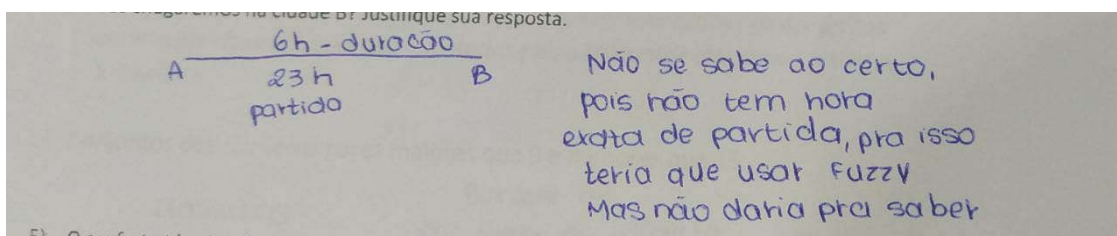 chegaremos na cidade B? Justifique sua resposta.
6h - duração
A 23h B
partida
Não se sabe ao certo,
pois não tem hora
exata de partida, pra isso
teria que usar Fuzzy
Mas não daria pra saber